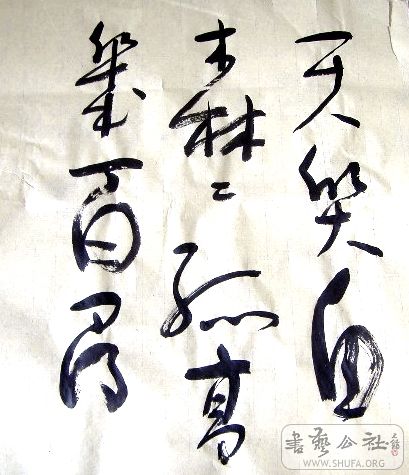 天質自
森々孤高
幾百尋
書藝公社
WWW.SHUFA.ORG